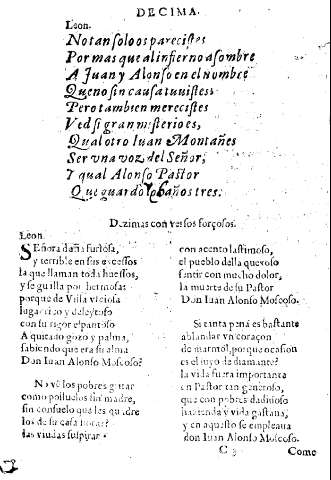 DECIMA.
Leon.
No tan solo os parecistes
Por mas que al infierno asombre
A Juan y Alonso en el nombre
Que no sin causa tuuistes:
Pero tambien merecistes
Ved si gran misterio es,
Qual otro Iuan Montañes
Ser vna voz del Señor,
Y qual Alonso Pastor
Que guardó años tres.
Dezimas con versos forçosos.
Leon.
SEñora daña furiosa,
y terrible en sus excessos
la que llaman toda huessos,
y se guilla por hermosa:
porque de Villa viciosa
lugar rico y deleytoso
con su rigor espantoso
A quitado gozo y palma,
sabiendo que era su alma
Don Iuan Alonso Moscoso?
No vè los pobres gritar
como polluelos sin madre,
sin consuelo que les quadre
los de su casa llorar?
las viudas suspirar
con acento lastimoso,
el pueblo della quexoso
sentir con mucho dolor,
la muerte de su Pastor
Don Iuan Alonso Moscoso.
Si tanta pena es bastante
ablandar vn coraçon
de marmol, por que ocasion
es el tuyo de diamante?
la vida fuera importante
en Pastor tan generoso,
que con pobres dadiuoso
hazienda y vida gastaua,
y en aquesto se empleaua
don Iuan Alonso Moscoso.
C Como